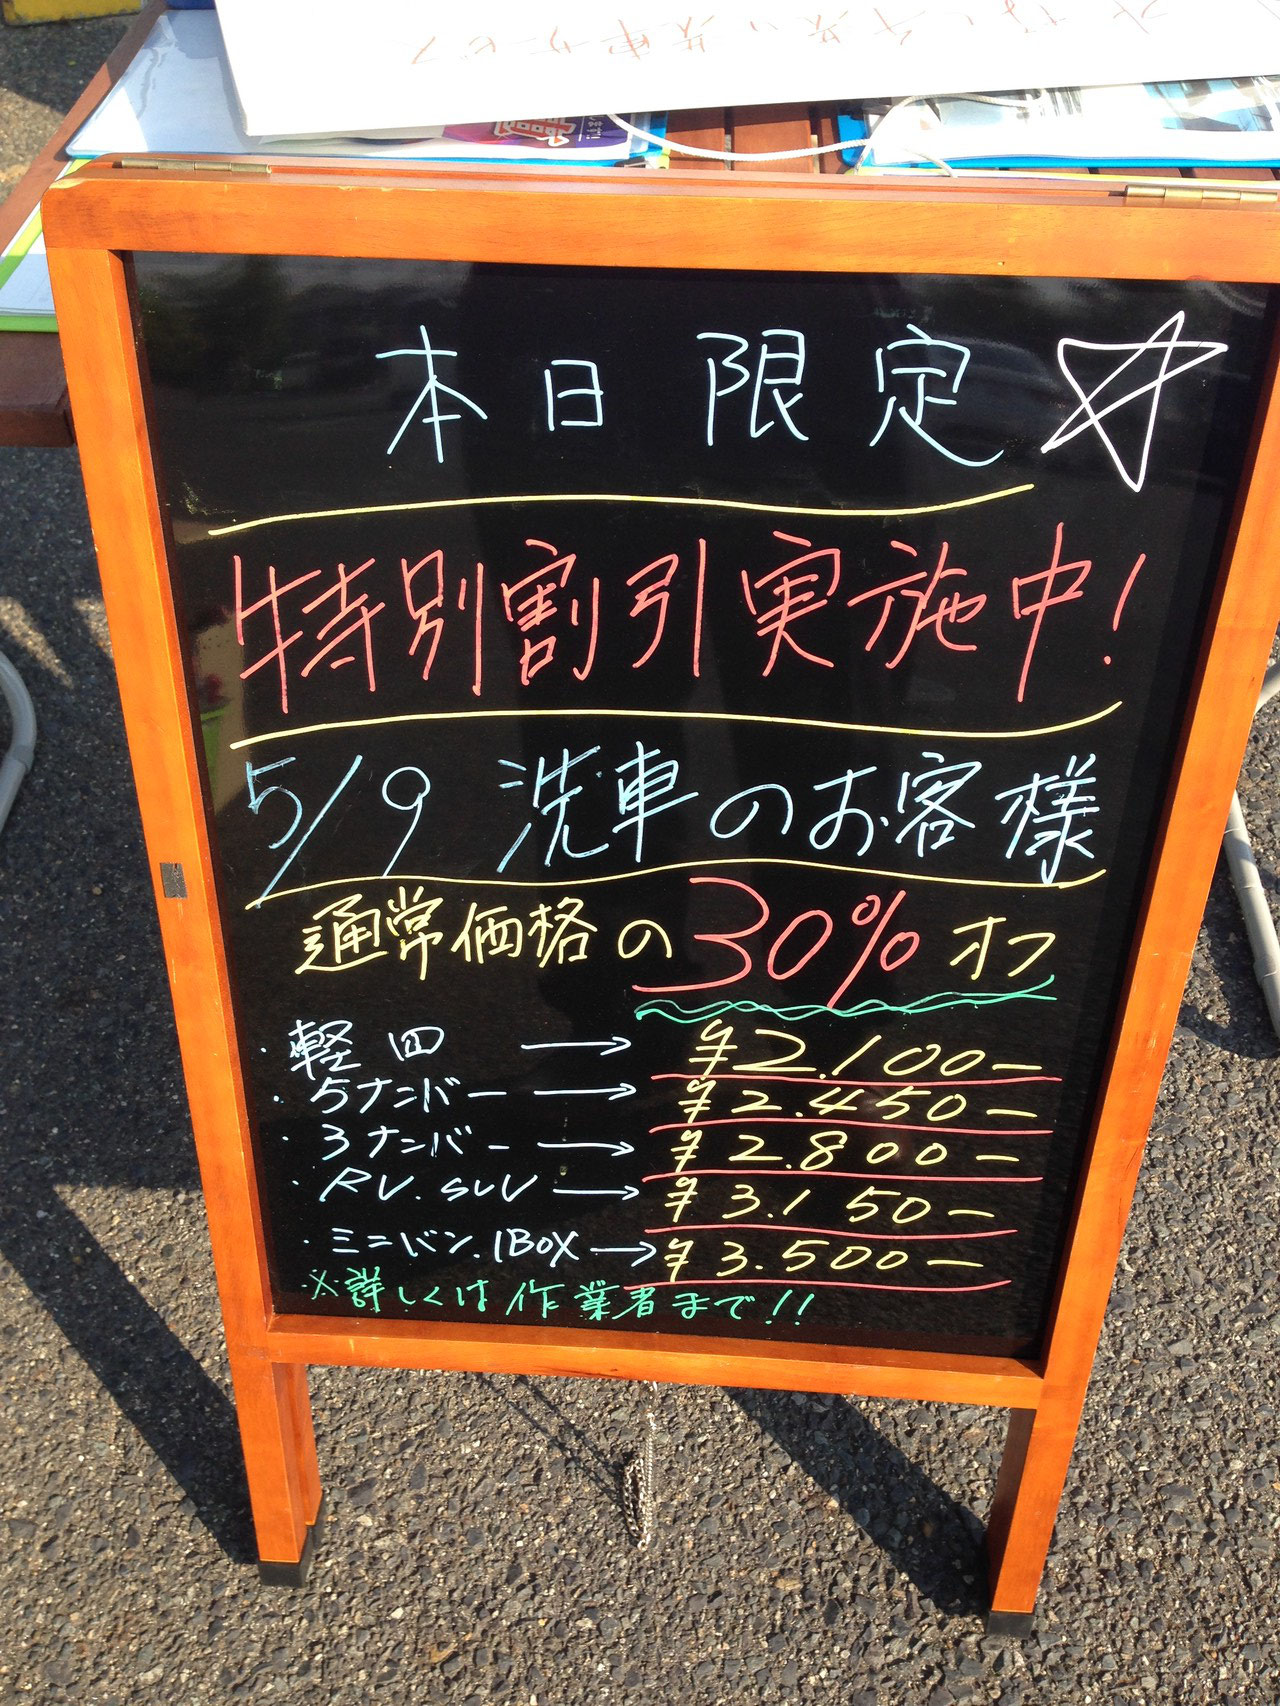 本日限定
特別割引実施中!
5/9 洗車のお客様
通常価格の30%オフ
・軽四 → ¥2.100-
・5ナンバー → ¥2.450-
・3ナンバー → ¥2.800-
・RV.SUV → ¥3.150-
・ミニバン.1BOX → ¥3.500-
※詳しくは作業者まで!!